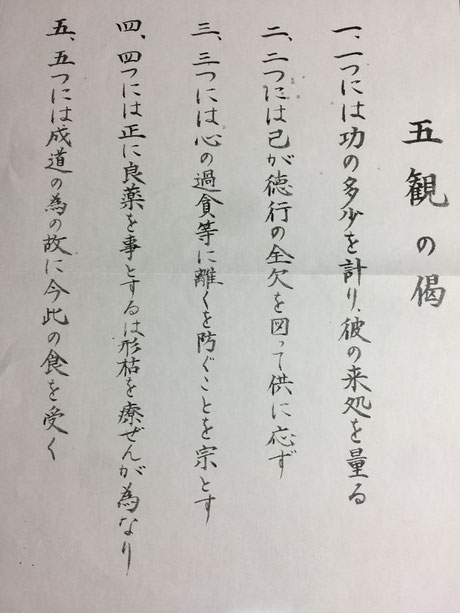 五観の偈
一、一つには功の多少を計り、彼の来処を量る
二、二つには己が徳行の全欠を図って供に応ず
三、三つには心の過貪等に離くを防ぐことを宗とす
四、四つには正に良薬を事とするは形枯を療ぜんが為なり
五、五つには成道の為の故に今此の食を受く